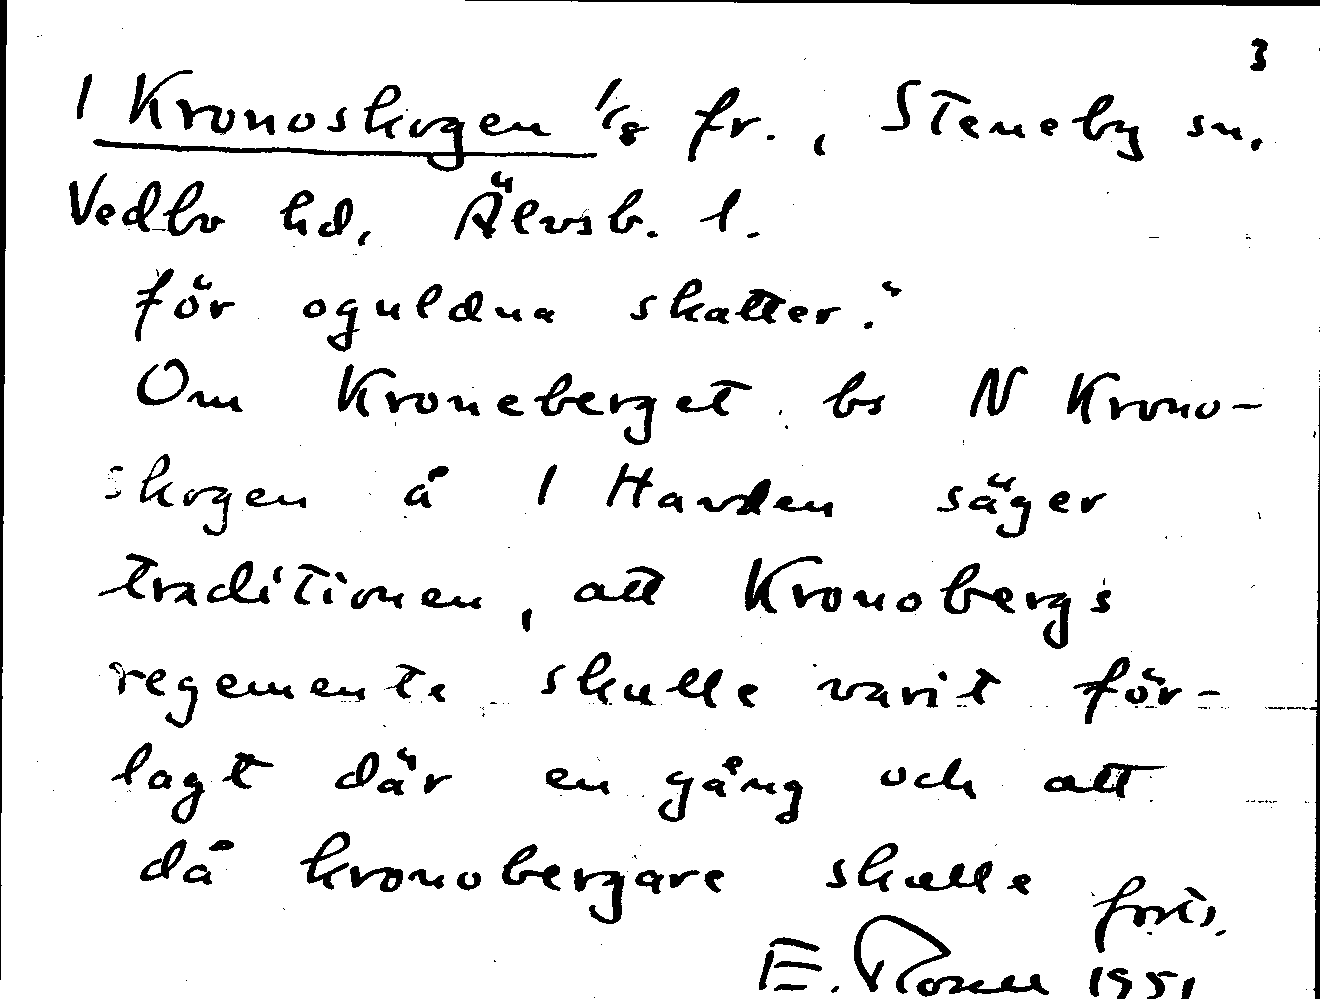 3
1 Kronoskogen 1/8 fr., Steneby sn.
Vedbo hd, Älvsb. l.
för oguldna skatter."
Om Kroneberget bs N Krono-
skogen å 1 Harden säger
traditionen, att Kronobergs
regemente skulle varit för-
lagt där en gång och att
då kronobergare skulle
forts.
E. Rosell 1951